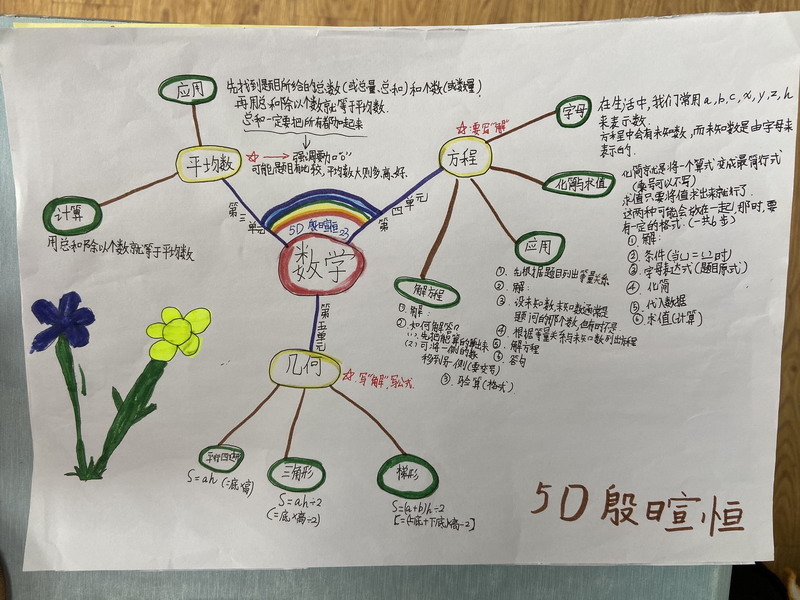 应用
先找到题目所给的总数(或总量、总和)和个数(或数量)
再用总和除以个数就等于平均数.
总和一定要把所有都加起来
☆→强调要加“0”
可能题目有比较,平均数大则多、高、好.
平均数
计算
用总和除以个数就等于平均数
第三单元
5D 殷暄恒 23
数学
第四单元
方程
☆:要写“解”
字母
在生活中,我们常用a,b,c,x,y,z,h
来表示数.
方程中会有未知数,而未知数是由字母来
表示的.
化简与求值
化简就是将一个算式变成最简行式
(乘号可以不写)
求值只要将值求出来就行了.
这两种可能会放在一起,那时,要
有一定的格式.(一共6步)
① 解:
② 条件(当∪=∪时)
③ 字母表达式(题目原式)
④ 化简
⑤ 代入数据
⑥ 求值(计算)
应用
① 先根据题目列出等量关系
② 解:
③ 设未知数,未知数通常是
题问的那个数,但有时不是.
④ 根据等量关系与未知数列出方程
⑤ 解方程
⑥ 答句
解方程
① 解:
② 如何解答?
(1) 先把能算的算出来
(2) 可将一侧的数
移到另一侧(要变号)
③ 验算(格式)
第五单元
几何
☆:写“解”,写公式.
平行四边形
S=ah(=底×高)
三角形
S=ah÷2
(=底×高÷2)
梯形
S=(a+b)h÷2
[=(上底+下底)×高÷2]
5D 殷暄恒